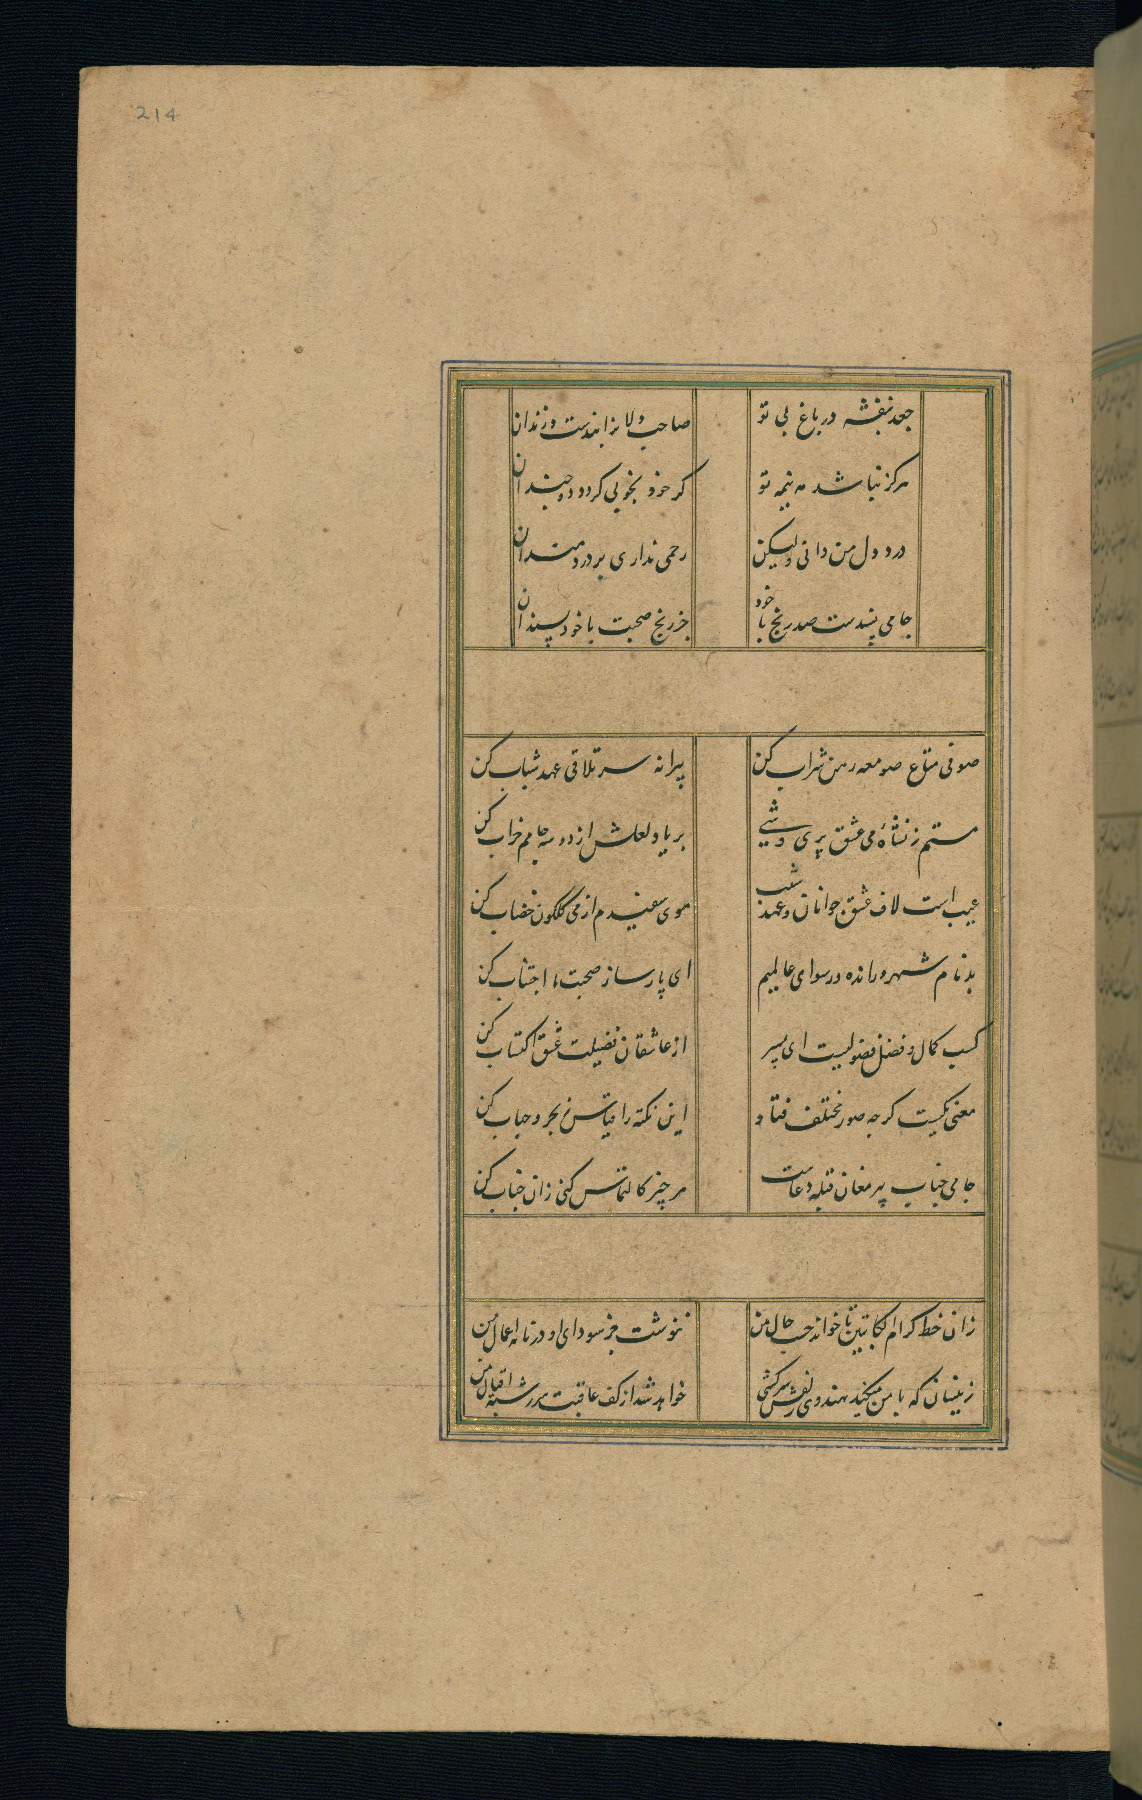 214
جعد بنفشه در باغ بی تو
صاحب ولا نرا بندست و زندان
هرکز نباشد مه نیمه تو
کر خود بخوبی کردد دو چندان
درد دل من دانی ولیکن
رحمی نداری بر دردمندان
جامی پسندست صد رنج با خود
جز رنج صحبت با خودپسندان
صوفی متاع صومعه رهن شراب کن
پیرانه سر تلاقی عهد شباب کن
مستم ز نشأه می عشق پری وشی
بر یاد لعلش از دو سه جامم خراب کن
عیب است لاف عشق جوانان و عهد شیب
موی سفیدم از می کلکون خضاب کن
بدنام شهر و رانده و رسوای عالمیم
ای پارسا ز صحبت ما اجتناب کن
کسب کمال و فضل فضولیست ای پسر
از عاشقان فضیلت عشق اکتساب کن
معنی یکیست کرچه صور مختلف فتاد
این نکته را قیاس ز بحر و حباب کن
جامی جناب پیر مغان قبله دعاست
هر چیز کالتماس کنی زان جناب کن
زان خط کرام الکاتبین تا خواند حسب حال من
ننوشت جز سودای او در نامه اعمال من
زینسان که با من میکند هندوی زلفش سرکشی
خواهد شد از کف عاقبت سررشته اقبال من